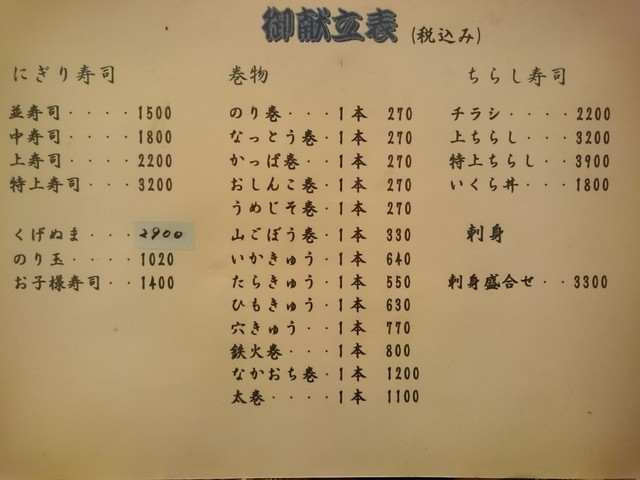 御献立表 (税込み)
にぎり寿司
並寿司・・・・1500
中寿司・・・・1800
上寿司・・・・2200
特上寿司・・・3200
くげぬま・・・2900
のり玉・・・・1020
お子様寿司・・1400
巻物
のり巻・・・1本 270
なっとう巻・1本 270
かっぱ巻・・1本 270
おしんこ巻・1本 270
うめじそ巻・1本 270
山ごぼう巻・1本 330
いかきゅう・1本 640
たらきゅう・1本 550
ひもきゅう・1本 630
穴きゅう・・1本 770
鉄火巻・・・1本 800
なかおち巻・1本 1200
太巻・・・・1本 1100
ちらし寿司
チラシ・・・・2200
上ちらし・・・3200
特上ちらし・・3900
いくら丼・・・1800
刺身
刺身盛合せ・・3300